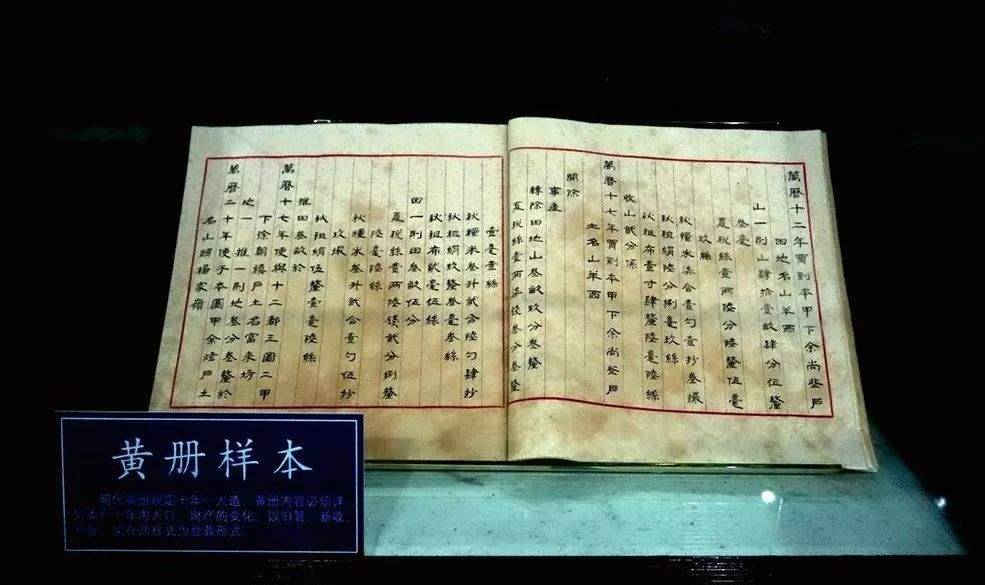 萬曆十二年買到本甲下余尚瑩戶
田地名山羊西
山一則山肆拾壹畝肆分伍釐
叁毫
夏稅絲壹兩陸分陸釐伍毫
玖絲
秋糧米柒合壹勺壹抄叁撮
秋租絹捌毫玖絲
秋租布壹寸肆釐陸毫陸絲
收山貳分係
萬曆十七年買到本甲下余尚瑩戶
土名山羊西
開除
事產
轉除田地山叁畝玖分叁釐
夏稅絲壹兩柒錢叁分叁釐
壹毫壹絲
秋糧米叁升貳合陸勺肆抄
秋租絹玖釐叁毫叁絲
秋租布貳毫伍絲
田一則田叁畝伍分
夏稅絲壹兩陸錢貳分捌釐
陸毫陸絲
秋糧米叁升貳合壹勺伍抄
玖撮
秋租絹伍釐壹毫陸絲
推田叁畝於
萬曆十七年使與十二都三圖二甲
下徐朝禧戶土名富來坊
地一 推一則地叁分叁釐於
萬曆二十年使于本圖甲余焙戶土
名山頭楊家
黄册样本
明代黄册规定十年一大造，黄册内容必须详
内人口、财产的变化，以旧管、新收、
实在四柱式为登载形式。